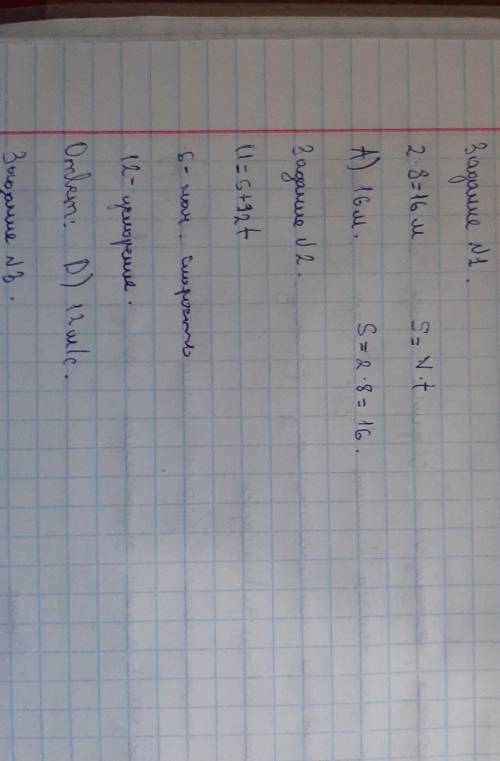 Задание №1.
2·8=16 м    S=V·t
A) 16 м.    S=2·8=16.
Задание №2.
5= нач. скорость
12= ускорение.
Ответ: D) 12 м/с.
Задание №3.